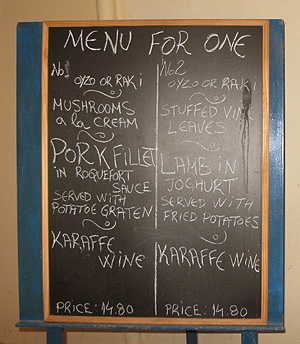 MENU FOR ONE
No1
OYZO OR RAKI
MUSHROOMS
a la CREAM
PORK FILLET
IN ROQUEFORT
SAUCE
SERVED WITH
POTATOE GRATEN
KARAFFE
WINE
PRICE: 14.80
No2
OYZO OR RAKI
STUFFED VINE
LEAVES
LAMB IN
JOGHURT
SERVED WITH
FRIED POTATOES
KARAFFE WINE
PRICE: 14.80